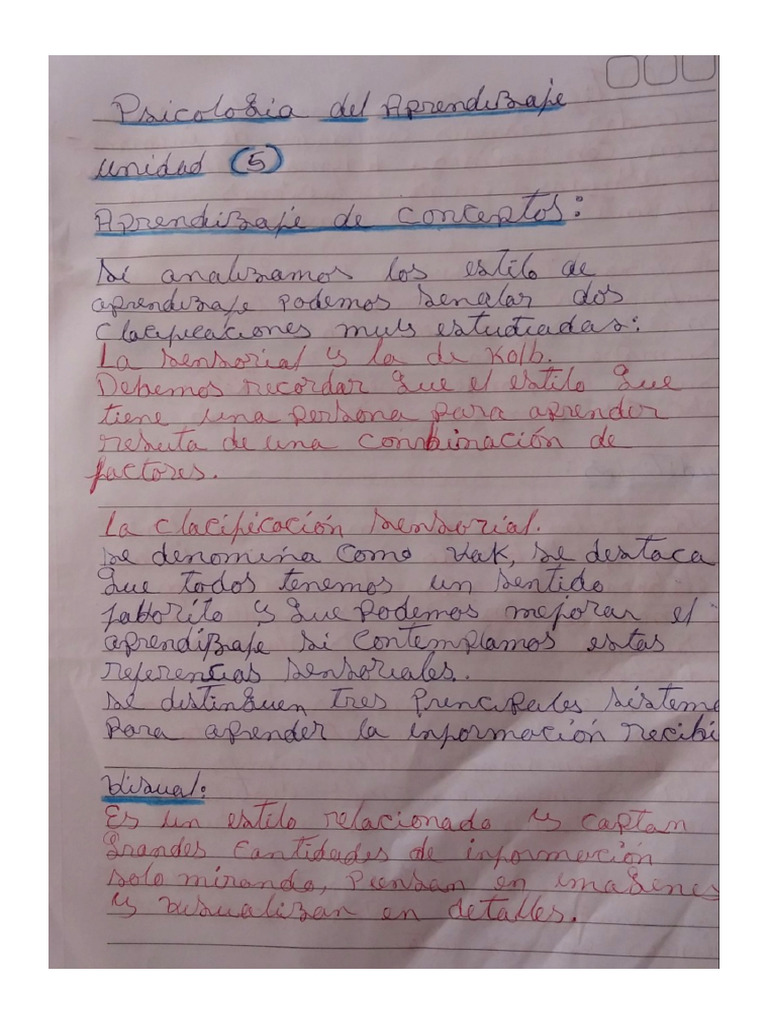 Psicologia del Aprendizaje
Unidad (5)
Aprendizaje de conceptos:
Si analizamos los estilo de
aprendizaje podemos senalar dos
Clacificaciones muy estudiadas:
La sensorial y la de Kolb.
Debemos recordar que el estilo que
tiene una persona para aprender
resuta de una combinación de
factores.
La clacificación sensorial.
se denomina como Vak, se destaca
que todos tenemos un sentido
faborito y que podemos mejorar el
aprendizaje si contemplamos estas
referencias sensoriales..
se distinguen tres principales sisteme
para aprender la información recibi
Visual:
Es un estilo relacionado y captan
grandes cantidades de información
solo mirando, piensan en imagenes
y visualizan en detalles.